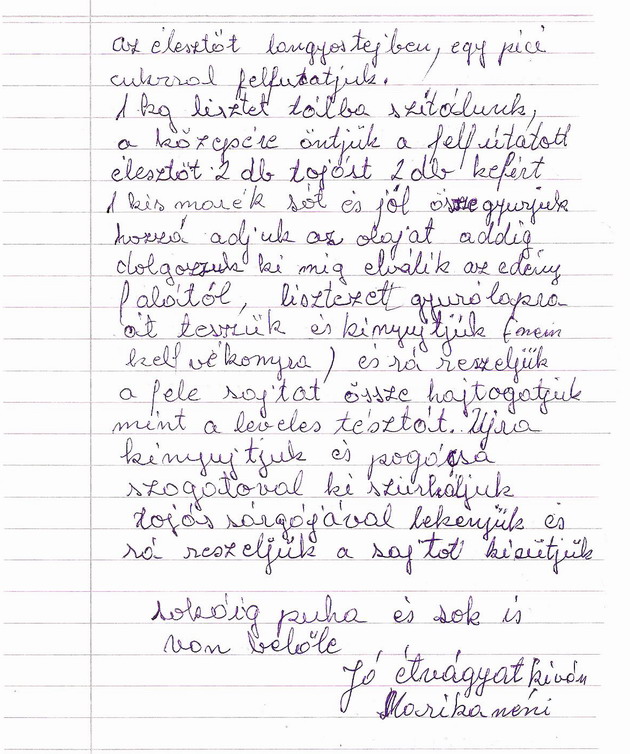 az élesztőt langyostejben, egy pici
cukrral felfutatjuk.
1 kg lisztet tálba szitálunk,
a közepére öntjük a felfútátott
élesztőt 2 db tojást 2 db kefírt
1 kis marék sót és jól összegyurjuk
hozzá adjuk az olajat addig
dolgozzuk ki mig elválik az edény
falától, lisztezett gyurólapra
át tesszük és kinyujtjuk (nem
kell vékonyra) és rá reszeljük
a fele sajtat össze hajtogatjuk
mint a leveles tésztát. Ujra
kinyujtjuk és pogácsa
szagatoval ki szurkáljuk
tojás sárgájával lekenjük és
rá reszeljük a sajtot kisütjük
sokáig puha és sok is
van belőle
Jó étvágyat kiván
Marika néni